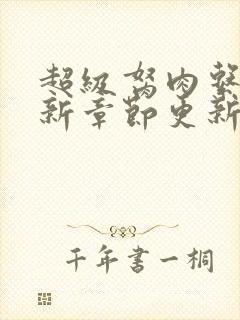 超级驽肉系
新章節更新
千年書一桐